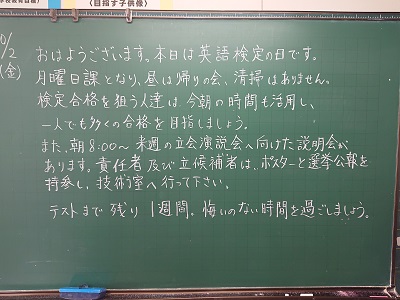 〈目指す子供像〉
/2
(金)
おはようございます。本日は英語検定の日です。
月曜日課となり、昼は帰りの会、清掃はありません。
検定合格を狙う人達は今朝の時間も活用し、
一人でも多くの合格を目指しましょう。
また、朝8:00〜来週の立会演説会へ向けた説明会が
あります。責任者及び立候補者は、ポスターと選挙公報を
持参し、技術室へ行って下さい。
テストまで残り1週間。悔いのない時間を過ごしましょう。